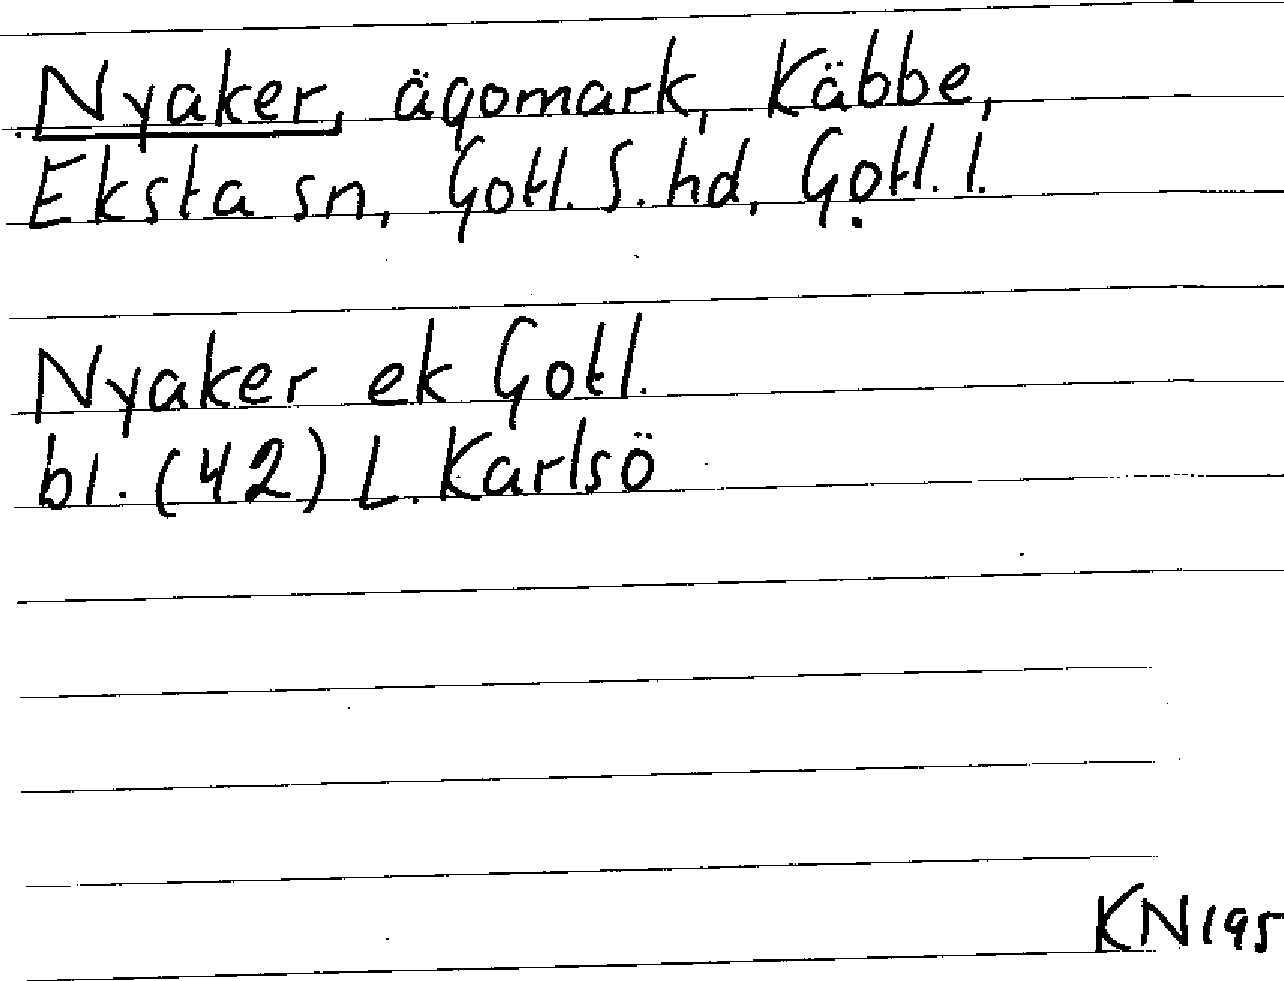 Nyaker, ägomark, Käbbe,
Eksta sn, Gotl. S. hd, Gotl. l.
Nyaker ek Gotl.
bl. (42) L. Karlsö
KN195